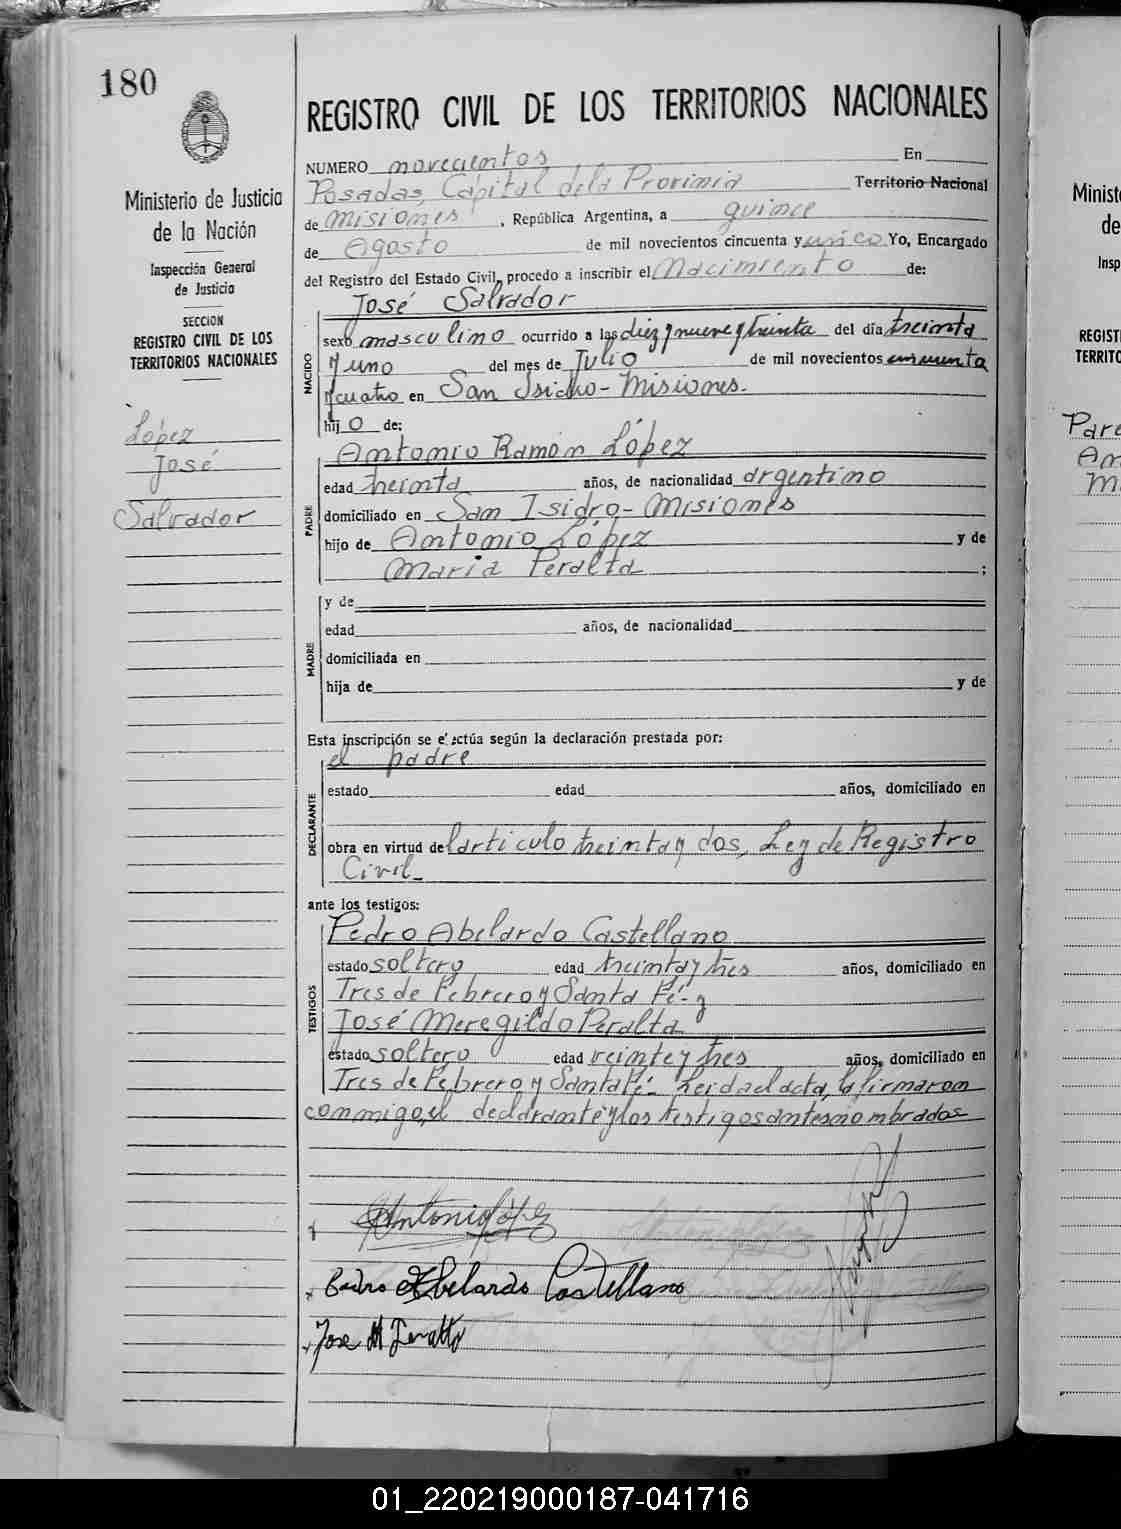 180
Ministerio de Justicia
de la Nación
Inspección General
de Justicia
SECCION
REGISTRO CIVIL DE LOS
TERRITORIOS NACIONALES
López
José
Salvador
REGISTRO CIVIL DE LOS TERRITORIOS NACIONALES
NUMERO novecientos En
Posadas, Capital de la Provincia Territorio Nacional
de Misiones, República Argentina, a quince
de Agosto de mil novecientos cincuenta y cinco Yo, Encargado
del Registro del Estado Civil, procedo a inscribir el Nacimiento de:
José Salvador
NACIDO
sexo masculino ocurrido a las diez y nueve y treinta del día treinta
y uno del mes de Julio de mil novecientos cincuenta
y cuatro en San Isidro - Misiones.
hij o de:
Antonio Ramón López
PADRE
edad treinta años, de nacionalidad argentino
domiciliado en San Isidro - Misiones
hijo de Antonio López y de
María Peralta ;
MADRE
y de
edad años, de nacionalidad
domiciliada en
hija de y de
Esta inscripción se efectúa según la declaración prestada por:
el padre
DECLARANTE
estado edad años, domiciliado en
obra en virtud del artículo treinta y dos, Ley de Registro
Civil_
ante los testigos:
Pedro Abelardo Castellano
TESTIGOS
estado soltero edad treinta y tres años, domiciliado en
Tres de Febrero y Santa Fé - y
José Meregildo Peralta
estado soltero edad veinte y tres años, domiciliado en
Tres de Febrero y Santa Fé - Leida el acta, la firmaron
conmigo, el declarante y los testigos antes nombrados
Antonio López
Pedro Abelardo Castellano
Jose M Peralta
Minist
de
Insp
REGIST
TERRITO
Pare
An
M
01_220219000187-041716